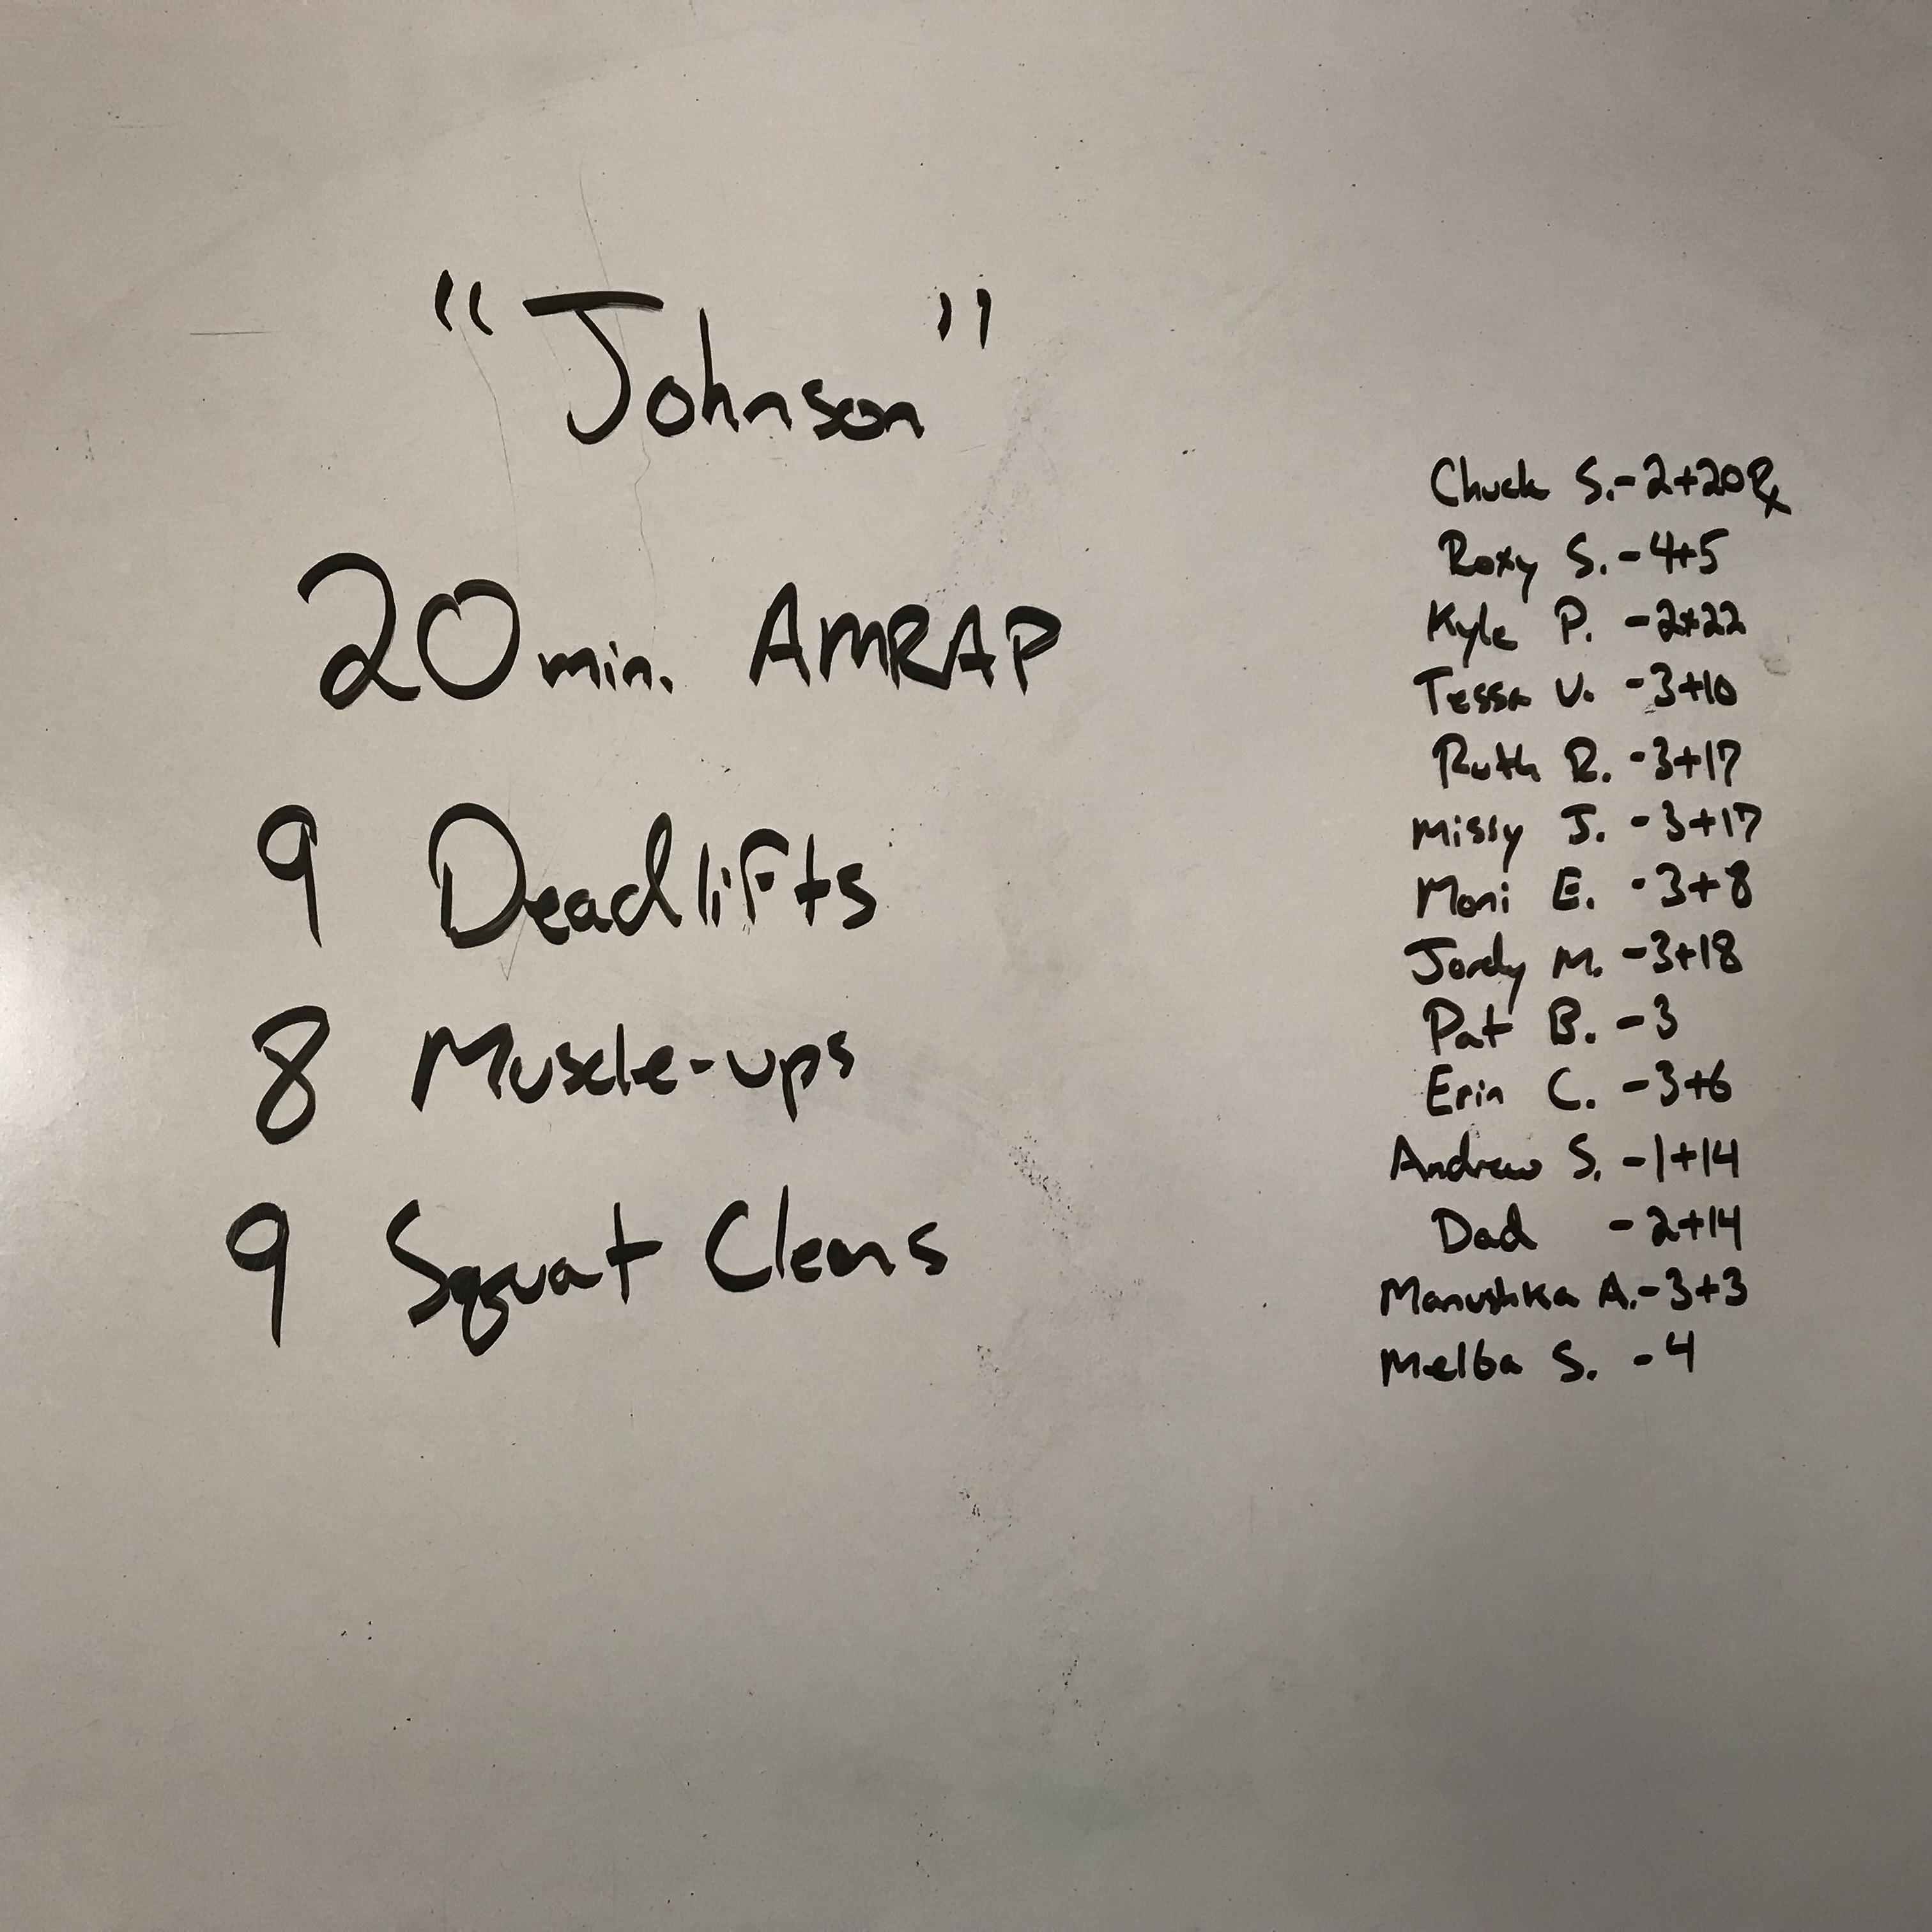 "Johnson"
20 min. AMRAP
9 Deadlifts
8 Muscle-ups
9 Squat Cleans
Chuck S. - 2+20 Rx
Roxy S. - 4+5
Kyle P. - 2+22
Tessa V. - 3+10
Ruth R. - 3+17
Missy J. - 3+17
Moni E. - 3+8
Jordy M. - 3+18
Pat B. - 3
Erin C. - 3+6
Andrew S. - 1+14
Dad - 2+14
Manushka A. - 3+3
Melba S. - 4